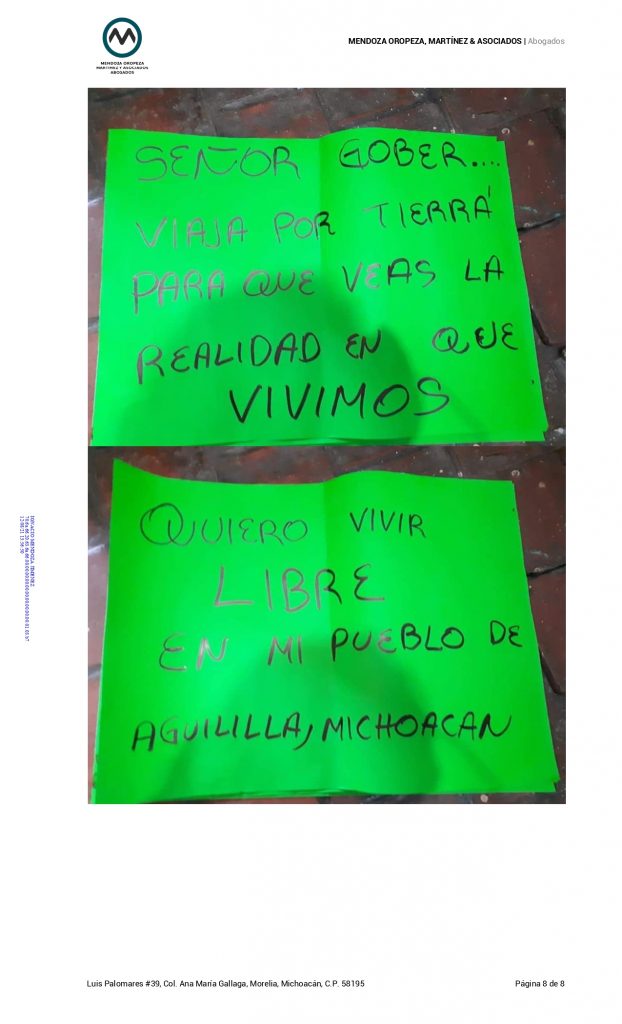 MENDOZA OROPEZA
MARTÍNEZ Y ASOCIADOS
ABOGADOS
MENDOZA OROPEZA, MARTÍNEZ & ASOCIADOS | Abogados
SEÑOR GOBER....
VIAJA POR TIERRÁ
PARA QUE VEAS LA
REALIDAD EN QUE
VIVIMOS
QUIERO VIVIR
LIBRE
EN MI PUEBLO DE
AGUILILLA, MICHOACAN
Luis Palomares #39, Col. Ana María Gallaga, Morelia, Michoacán, C.P. 58195
Página 8 de 8